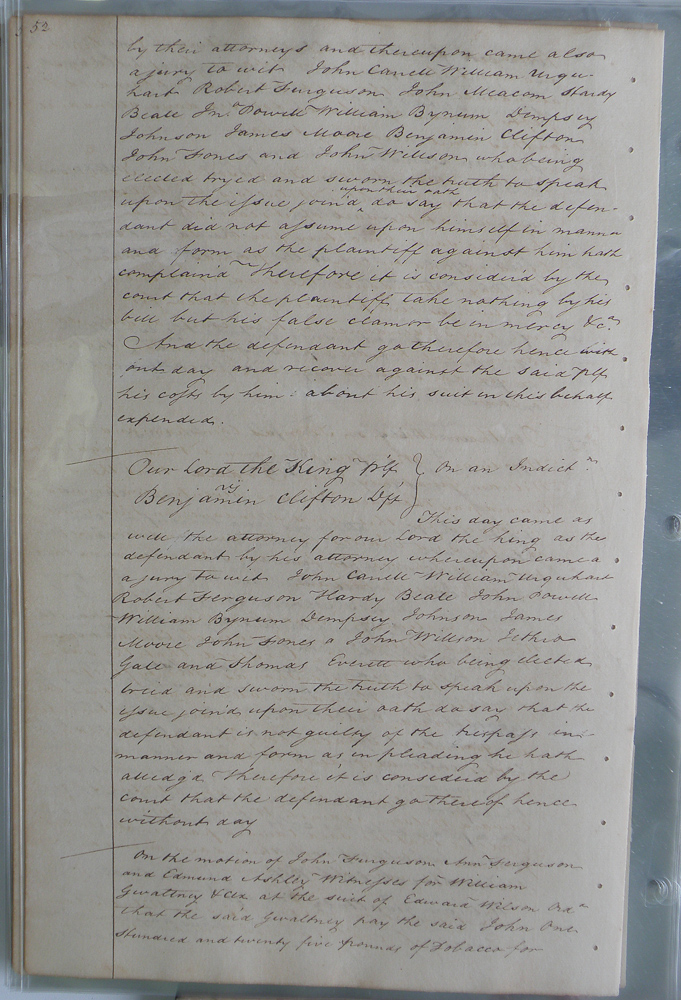 52
by their attorneys and thereupon came also
a jury to wit John Canell William Urqu-
hart Robert Ferguson John Meacom Hardy
Beale Jno. Powell William Bynum Dempsey
Johnson James Moore Benjamin Clifton
John Jones and John Willson who being
elected tryed and sworn the truth to speak
upon their oath
upon the issue join'd ^ do say that the defen-
dant did not assume upon himself in manner
and form as the plaintiff against him hath
complain'd Therefore it is consider'd by the
court that the plaintiff take nothing by his
bill but his false clamor be in mercy &c.a
And the defendant go therefore hence with
out day and recover against the said plf
his costs by him about his suit in this behalf
expended.
Our Lord the King Plf } On an Indictm
vs
Benjamin Clifton Deft }
This day came as
well the attorney for our Lord the king as the
defendant by his attorney whereupon came a
a jury to wit John Canell William Urquhart
Robert Ferguson Hardy Beale John Powell
William Bynum Dempsey Johnson James
Moore John Jones a John Willson Jethro
Gale and Thomas Everett who being elected
treid and sworn the truth to speak upon the
issue join'd upon their oath do say that the
defendant is not guilty of the trespass in
manner and form as in pleading he hath
alledg'd Therefore it is consider'd by the
court that the defendant go thereof hence
without day
On the motion of John Furguson Ann Ferguson
and Edmund Ashley Witnesses for William
Gwaltney & Ux at the suit of Edward Wilson Ord.
that the said Gwaltney pay the said John One
Hundred and twenty five pounds of Tobacco for